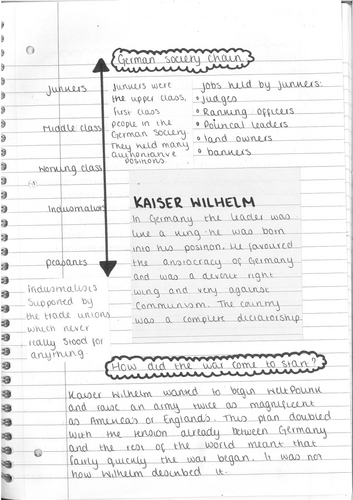 German society chain
Junkers
Middle class
Working class
Industrialists
Peasants
Junkers were
the upper class,
first class
people in the
German Society.
They held many
authoritative
positions.
Jobs held by Junkers:
• Judges
• Ranking officers
• Political leaders
• land owners
• bankers
KAISER WILHELM
In Germany the leader was
like a king. he was born
into his position. He favoured
the aristocracy of Germany
and was a devout right
wing and very against
Communism. The country
was a complete dictatorship.
Industrialists
Supported by
the trade unions
which never
really stood for
anything
How did the war come to start?
Kaiser Wilhelm wanted to begin Weltpolitik
and raise an army twice as magnificent
as America's or England's. This plan doubled
with the tension already between Germany
and the rest of the world meant that
fairly quickly the war began. It was not
how Wilhelm described it.